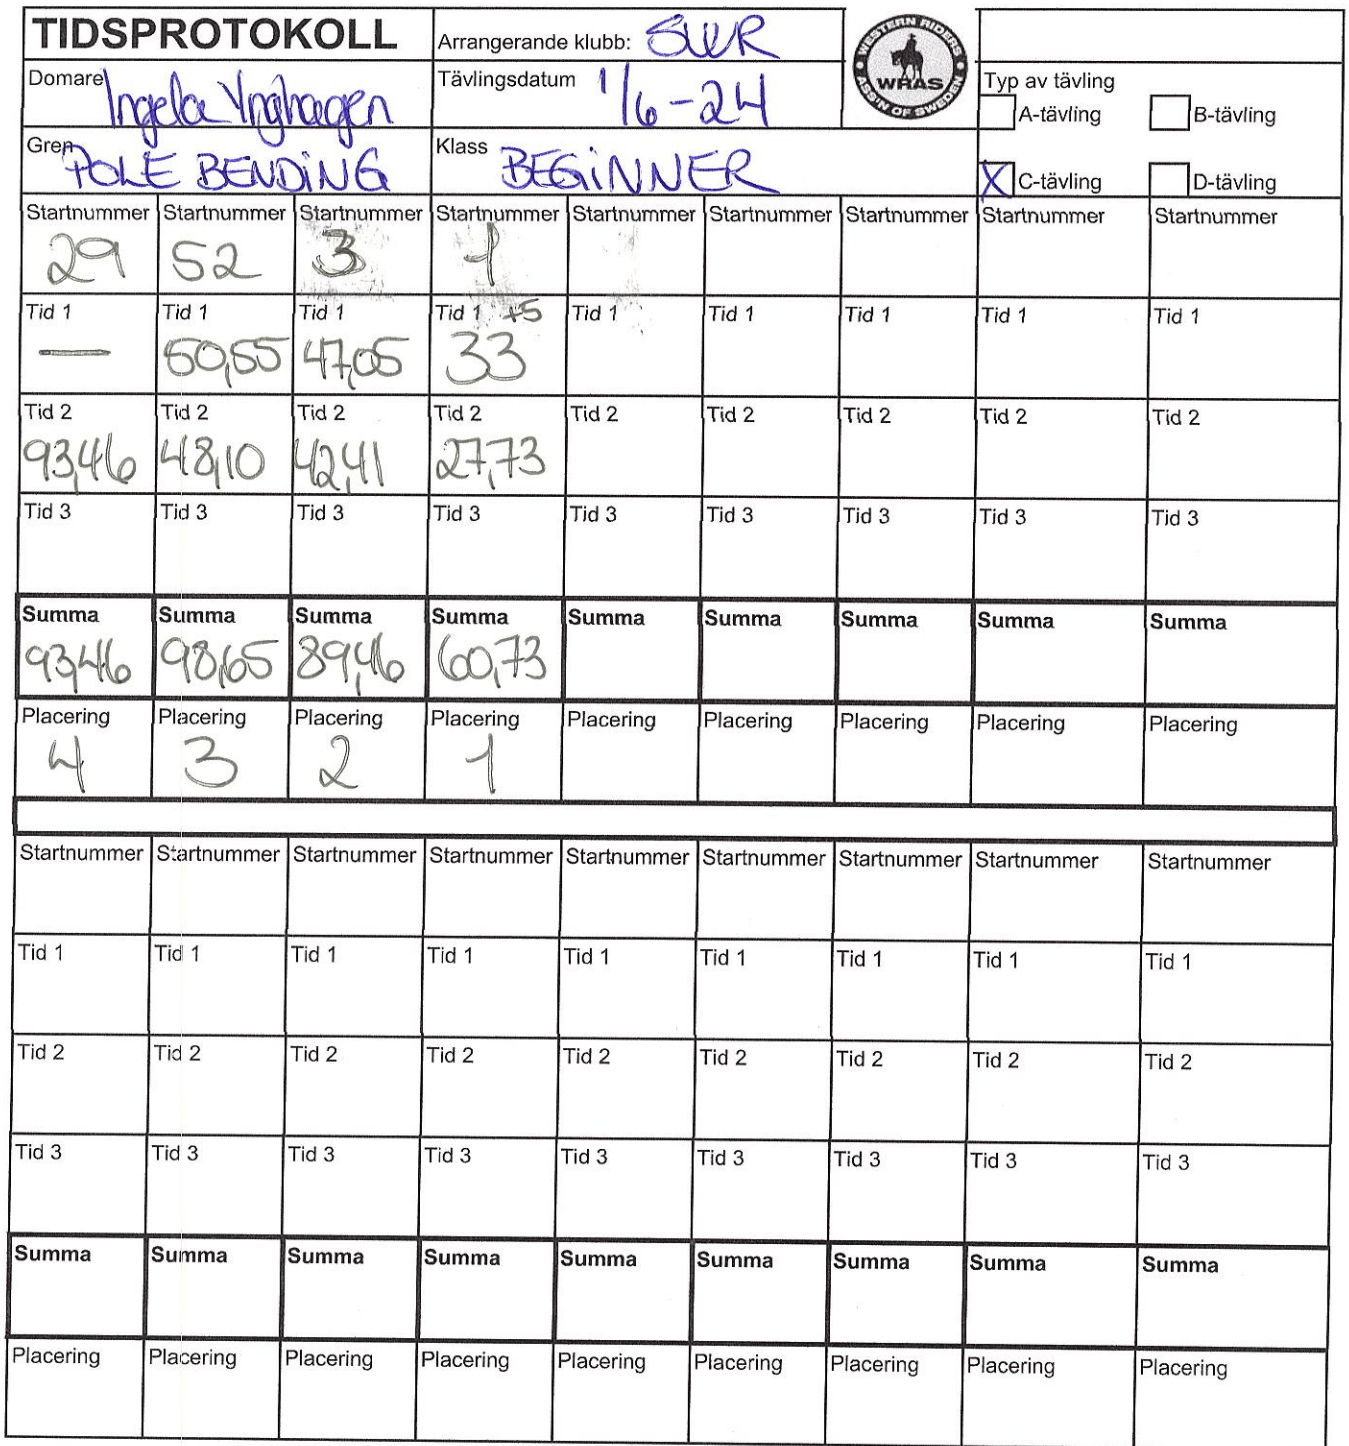 TIDSPROTOKOLL
Arrangerande klubb: SWR
WESTERN RIDERS
WRAS
ASS'N OF SWEDEN
Domare Ingela
Tävlingsdatum 1/6-24
Typ av tävling
A-tävling B-tävling
Gren POLE BENDING
Klass BEGINNER
X C-tävling D-tävling
Startnummer Startnummer Startnummer Startnummer Startnummer Startnummer Startnummer Startnummer Startnummer
29 52 3 1
Tid 1 Tid 1 Tid 1 Tid 1 +5 Tid 1 Tid 1 Tid 1 Tid 1 Tid 1
— 50,55 47,05 33
Tid 2 Tid 2 Tid 2 Tid 2 Tid 2 Tid 2 Tid 2 Tid 2 Tid 2
93,46 48,10 42,41 27,73
Tid 3 Tid 3 Tid 3 Tid 3 Tid 3 Tid 3 Tid 3 Tid 3 Tid 3
Summa Summa Summa Summa Summa Summa Summa Summa Summa
93,46 98,65 89,46 60,73
Placering Placering Placering Placering Placering Placering Placering Placering Placering
4 3 2 1
Startnummer Startnummer Startnummer Startnummer Startnummer Startnummer Startnummer Startnummer Startnummer
Tid 1 Tid 1 Tid 1 Tid 1 Tid 1 Tid 1 Tid 1 Tid 1 Tid 1
Tid 2 Tid 2 Tid 2 Tid 2 Tid 2 Tid 2 Tid 2 Tid 2 Tid 2
Tid 3 Tid 3 Tid 3 Tid 3 Tid 3 Tid 3 Tid 3 Tid 3 Tid 3
Summa Summa Summa Summa Summa Summa Summa Summa Summa
Placering Placering Placering Placering Placering Placering Placering Placering Placering